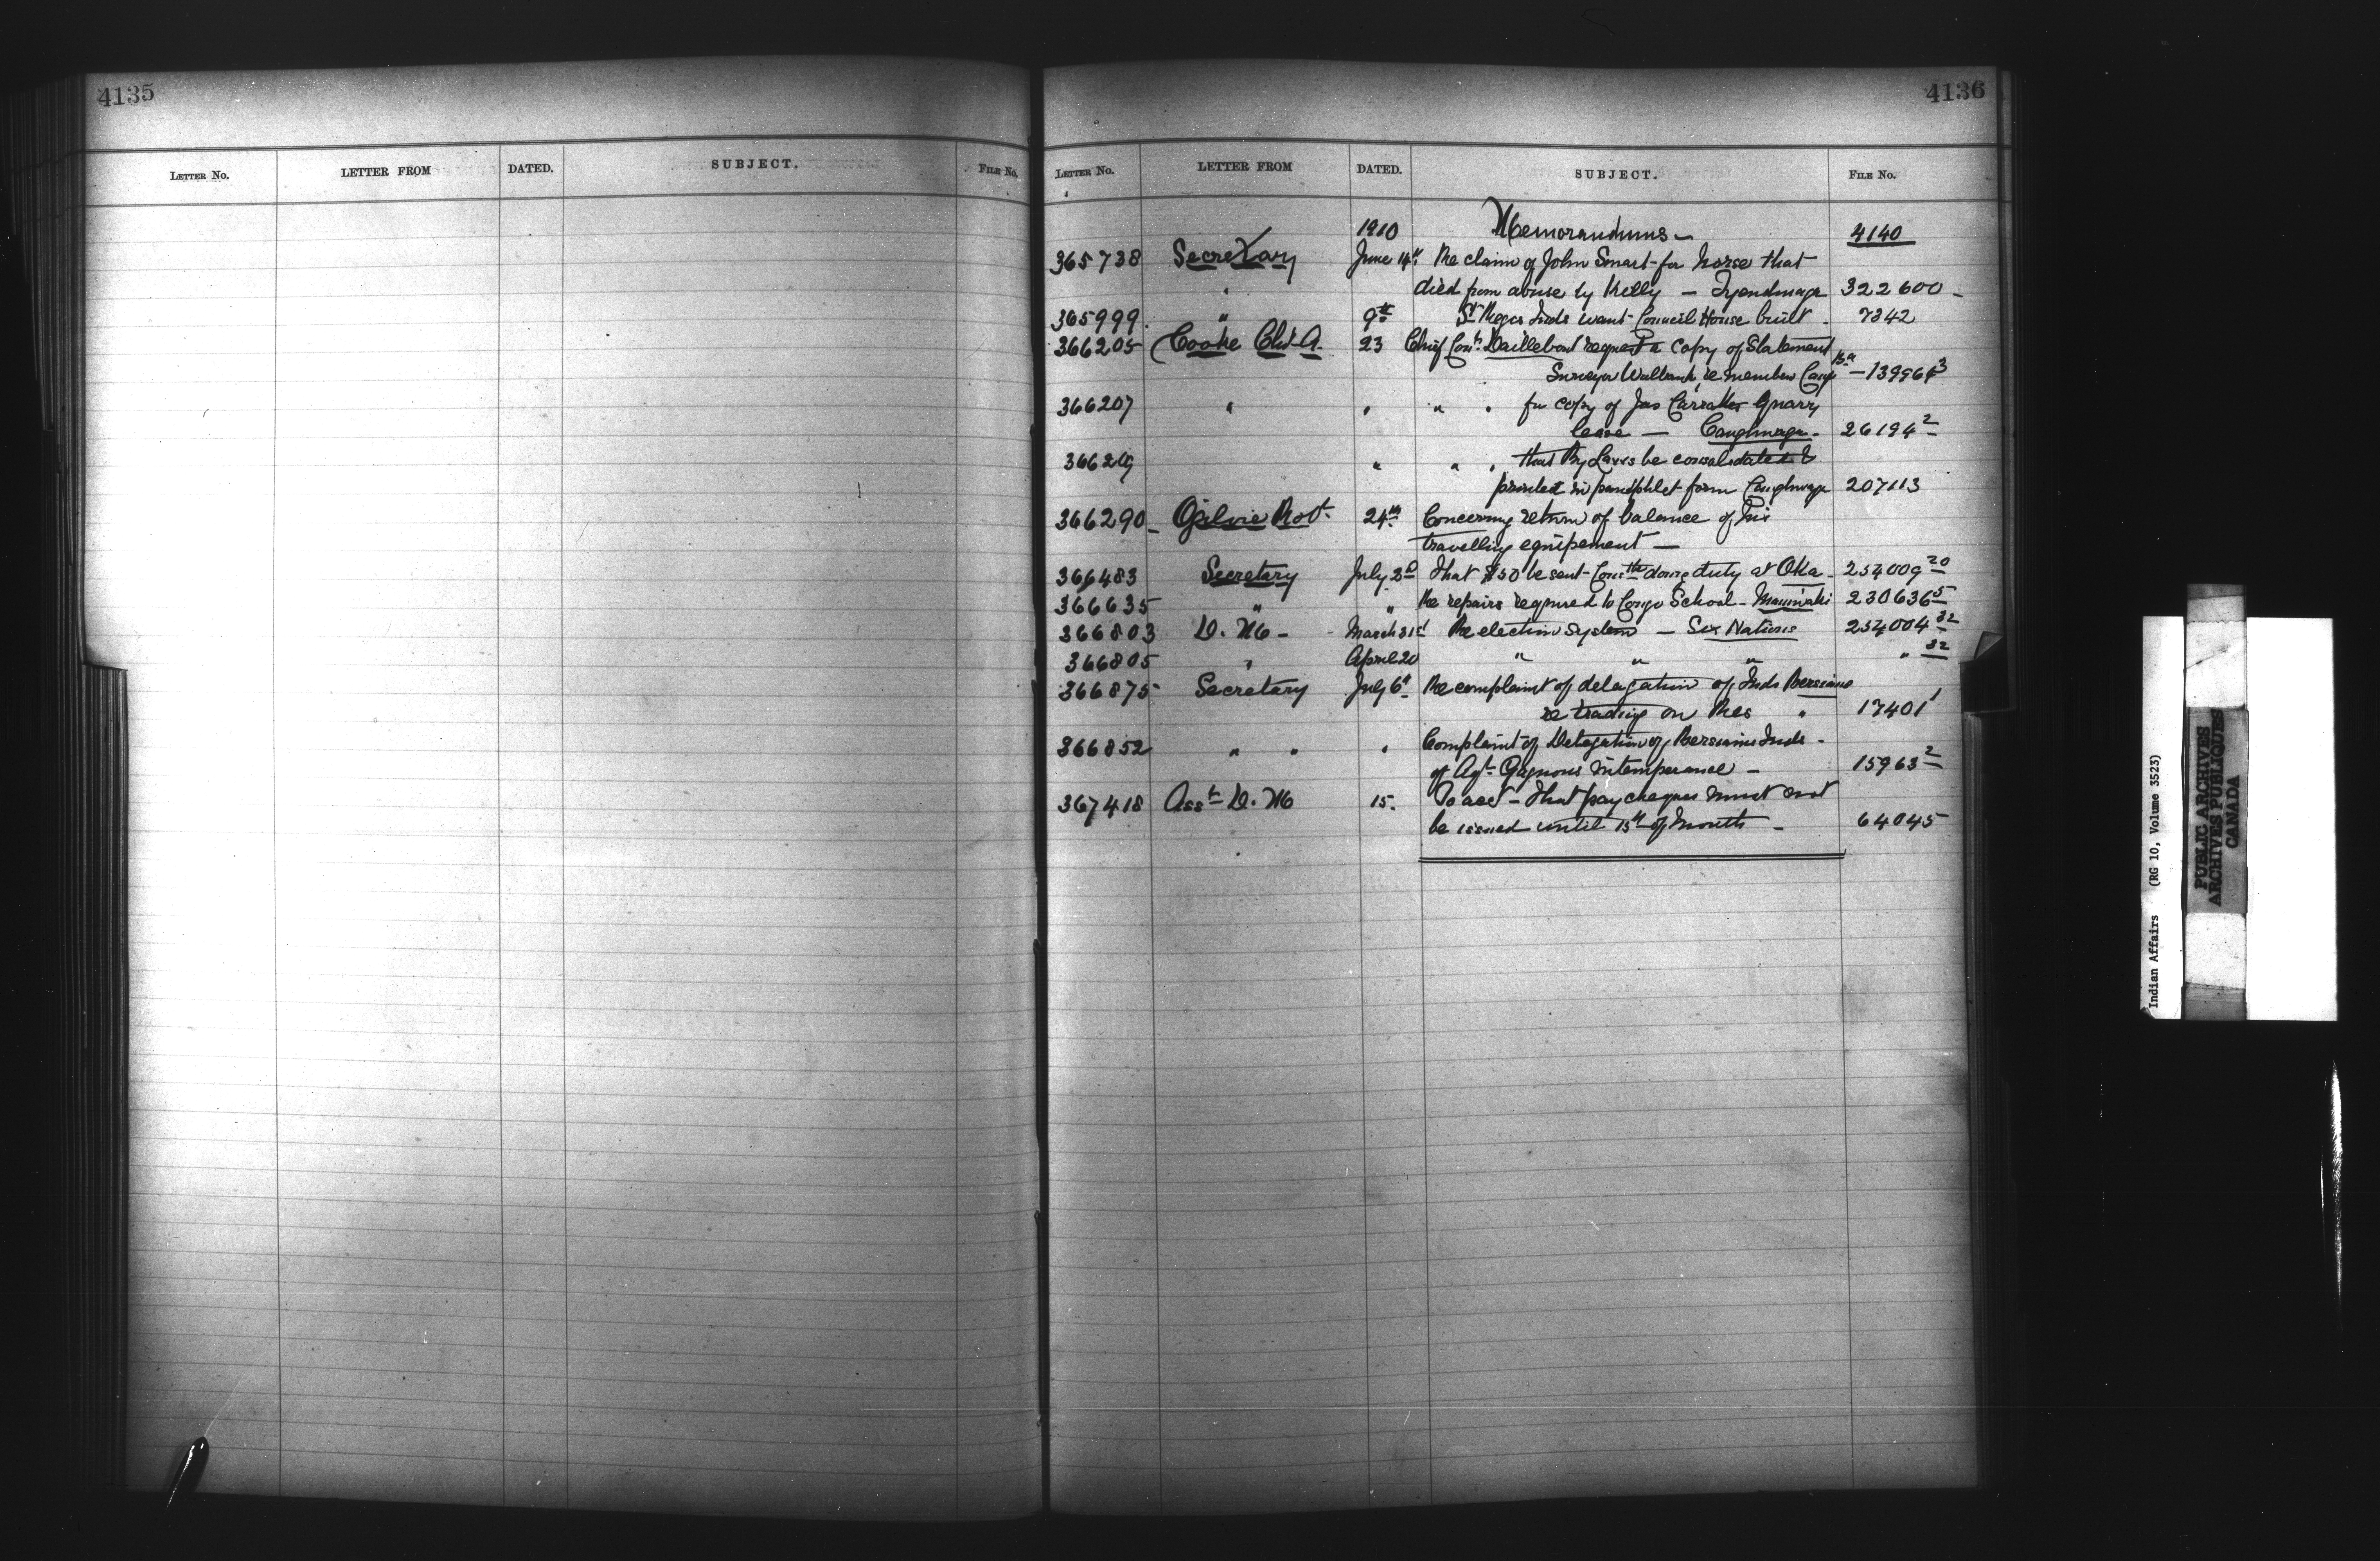 4135
LETTER NO. LETTER FROM DATED. SUBJECT. FILE NO.
4136
LETTER NO. LETTER FROM DATED. SUBJECT. FILE NO.
1910 Memorandums - 4140
365738 Secretary June 14th Re claim of John Smart for horse that
" died from abuse by Kelly - Tyendinaga 322600 -
365999 " 9th St Regis Inds want Council House built - 7342
366205 Cooke Chs A. 23 Chief Request a copy of Statement
Surveyor Walbank re member Caug - 139964 3
366207 " " " " for copy of Jas Quarry
lease - Caughnawaga - 26194 2
" " " that By Laws be consolidated &
printed in pamphlet form Caughnawaga 207113
366290 - Ogilvie Robt. 24th Concerning return of balance of his
travelling equipement -
366483 Secretary July 2d That $50 be sent doing duty at Oka - 254009 20
366635 " " Re repairs required to Congo School - Maniwaki 230636 5
366803 D. M - - March 31st Re election system - Six Nations 254004 32
366805 " April 20 " " " " 32
366875 Secretary July 6th Re complaint of delegation of Inds Bersimis
re trading on Res " 17401 1
366852 " " " Complaint of Delegation of Bersimis Inds -
of Agt. Gagnons intemperance - 15963 2
367418 Asst D. M 15. To acct - that pay cheques must not
be issued until 15th of Month - 64045
Indian Affairs (RG 10, Volume 3523)
PUBLIC ARCHIVES
ARCHIVES PUBLIQUES
CANADA